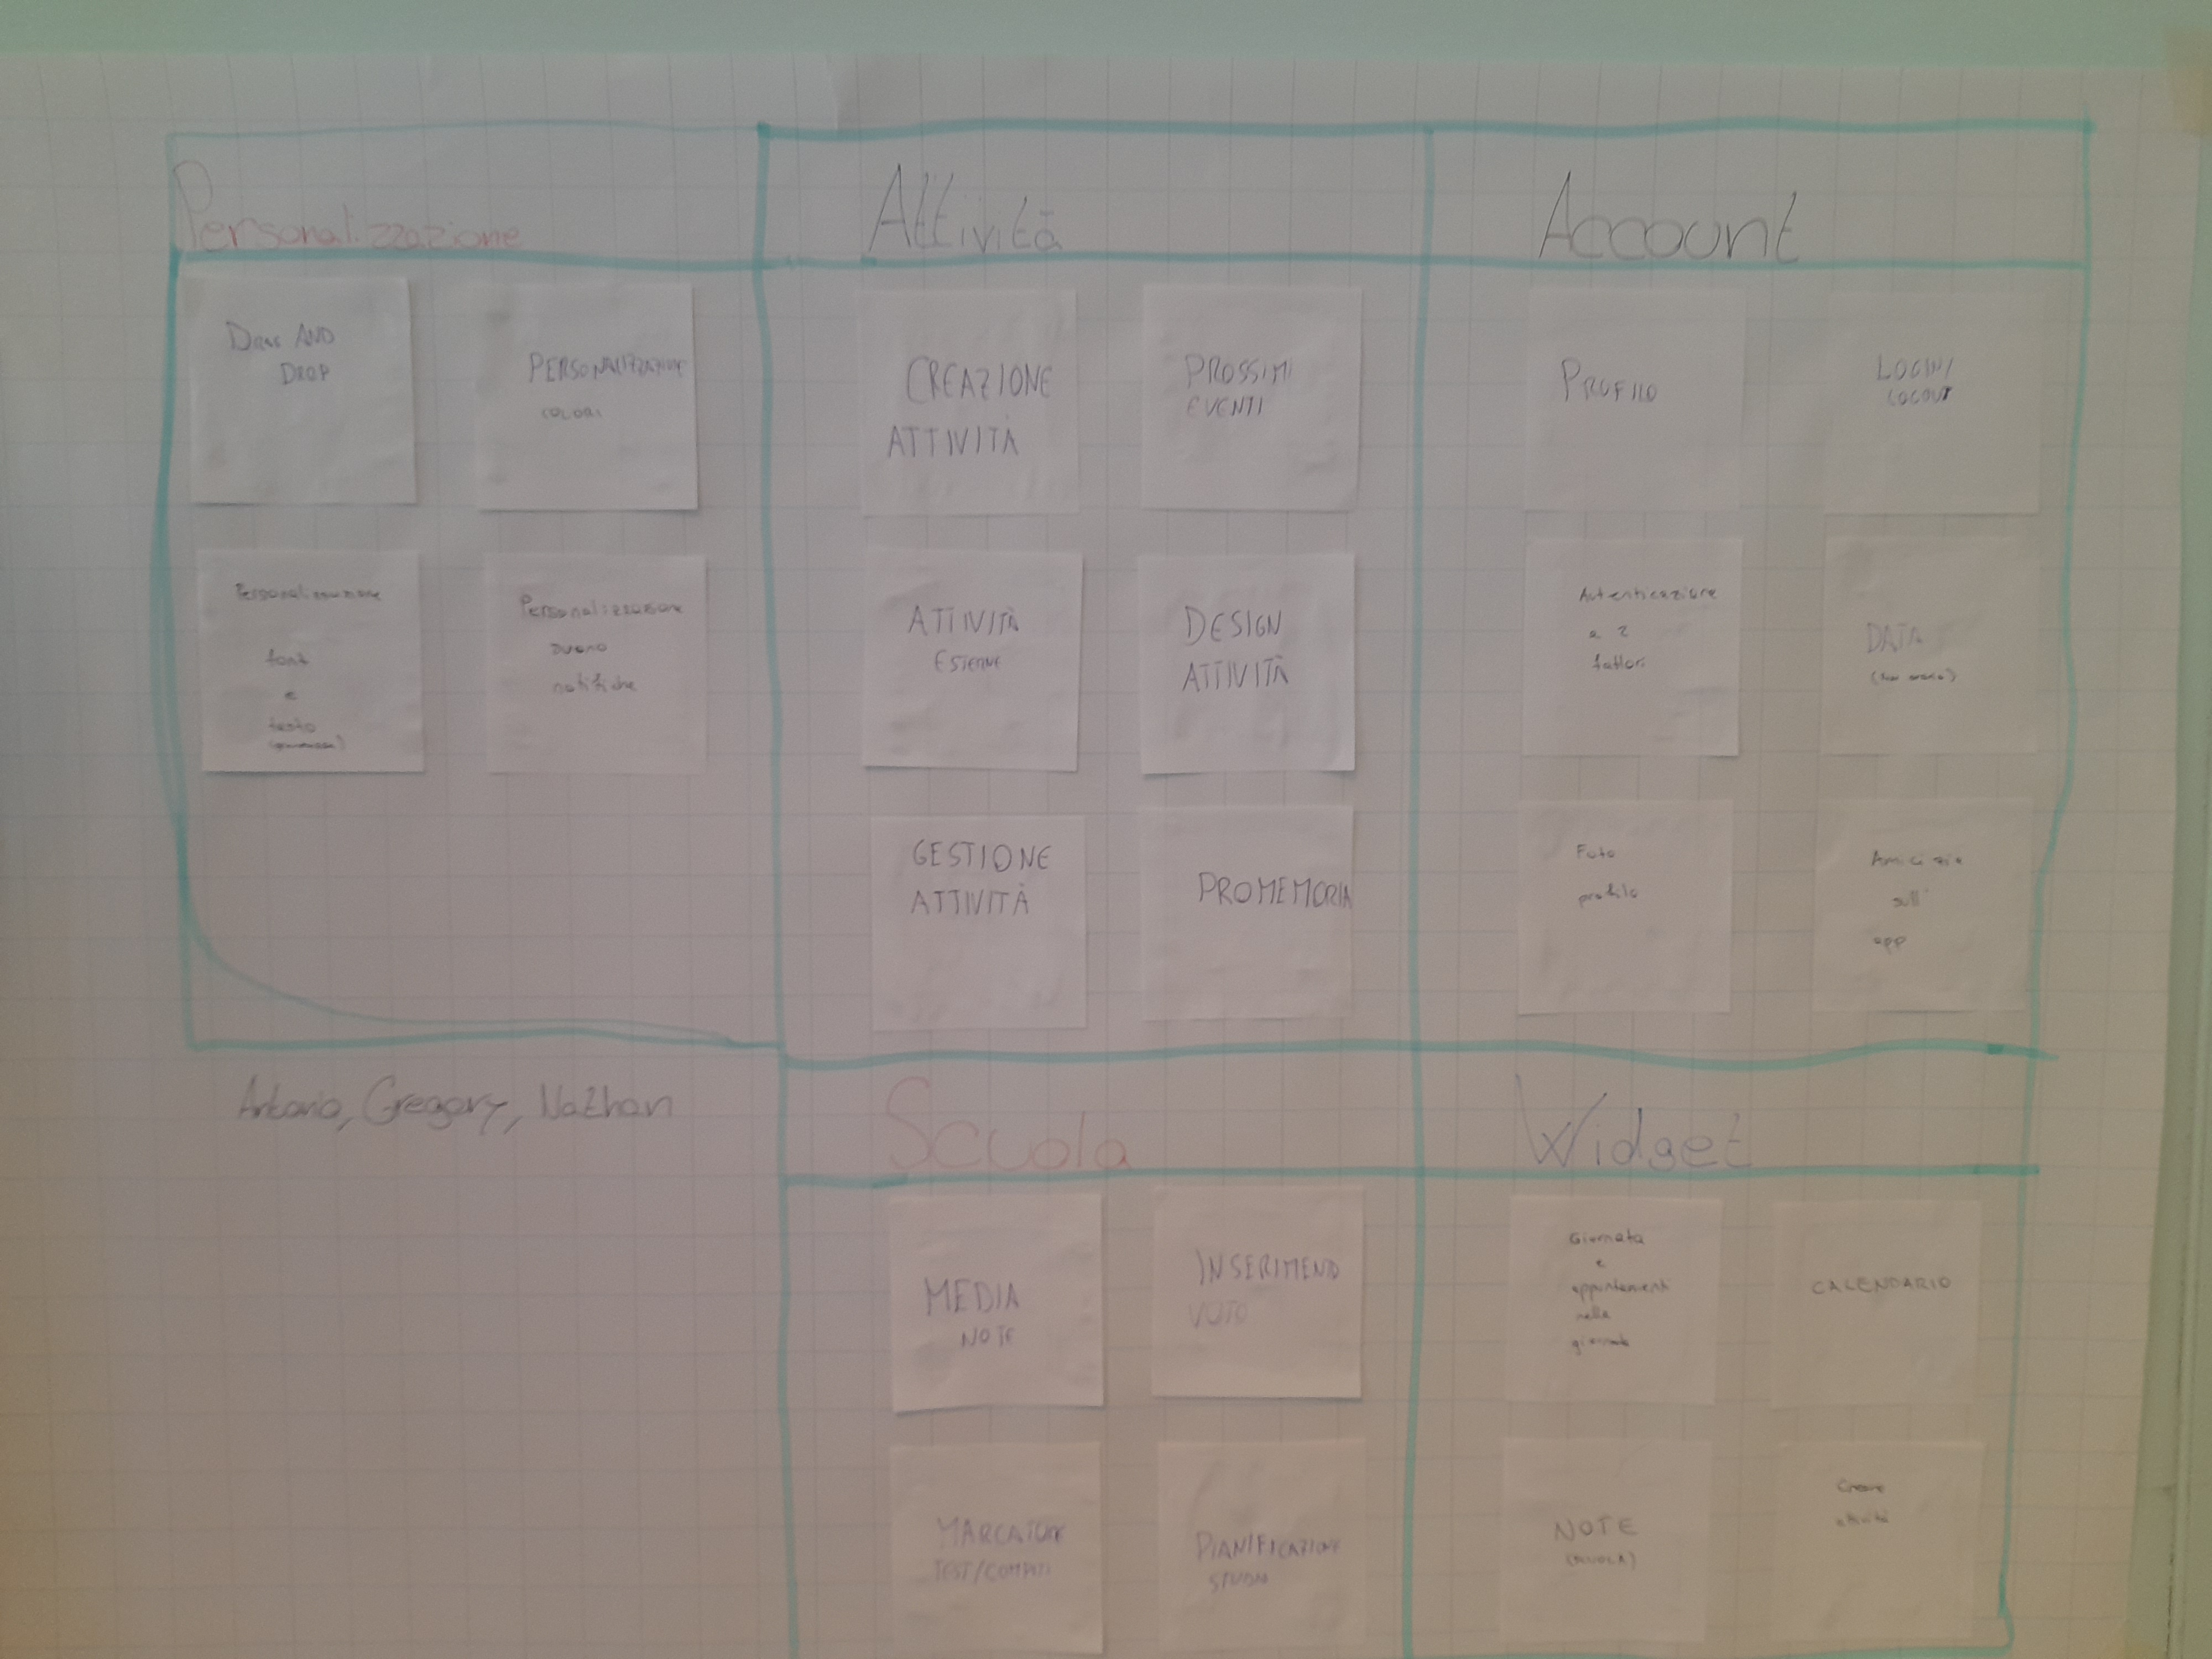 Personalizzazione
DRAG AND
DROP
PERSONALIZZAZIONE
COLORI
Personalizzazione
font
e
testo
Personalizzazione
suono
notifiche
Antonio, Gregory, Nathan
Attività
CREAZIONE
ATTIVITÀ
PROSSIMI
EVENTI
ATTIVITÀ
ESTERNE
DESIGN
ATTIVITÀ
GESTIONE
ATTIVITÀ
PROMEMORIA
Account
PROFILO
LOGIN/
LOGOUT
Autenticazione
a 2
fattori
DATA
Foto
profilo
Amicizie
sull'
app
Scuola
MEDIA
NOTE
INSERIMENTO
VOTO
MARCATURE
TEST/COMPITI
PIANIFICAZIONE
STUDIO
Widget
Giornata
e
appuntamenti
nella
giornata
CALENDARIO
NOTE
(SCUOLA)
Creare
attività